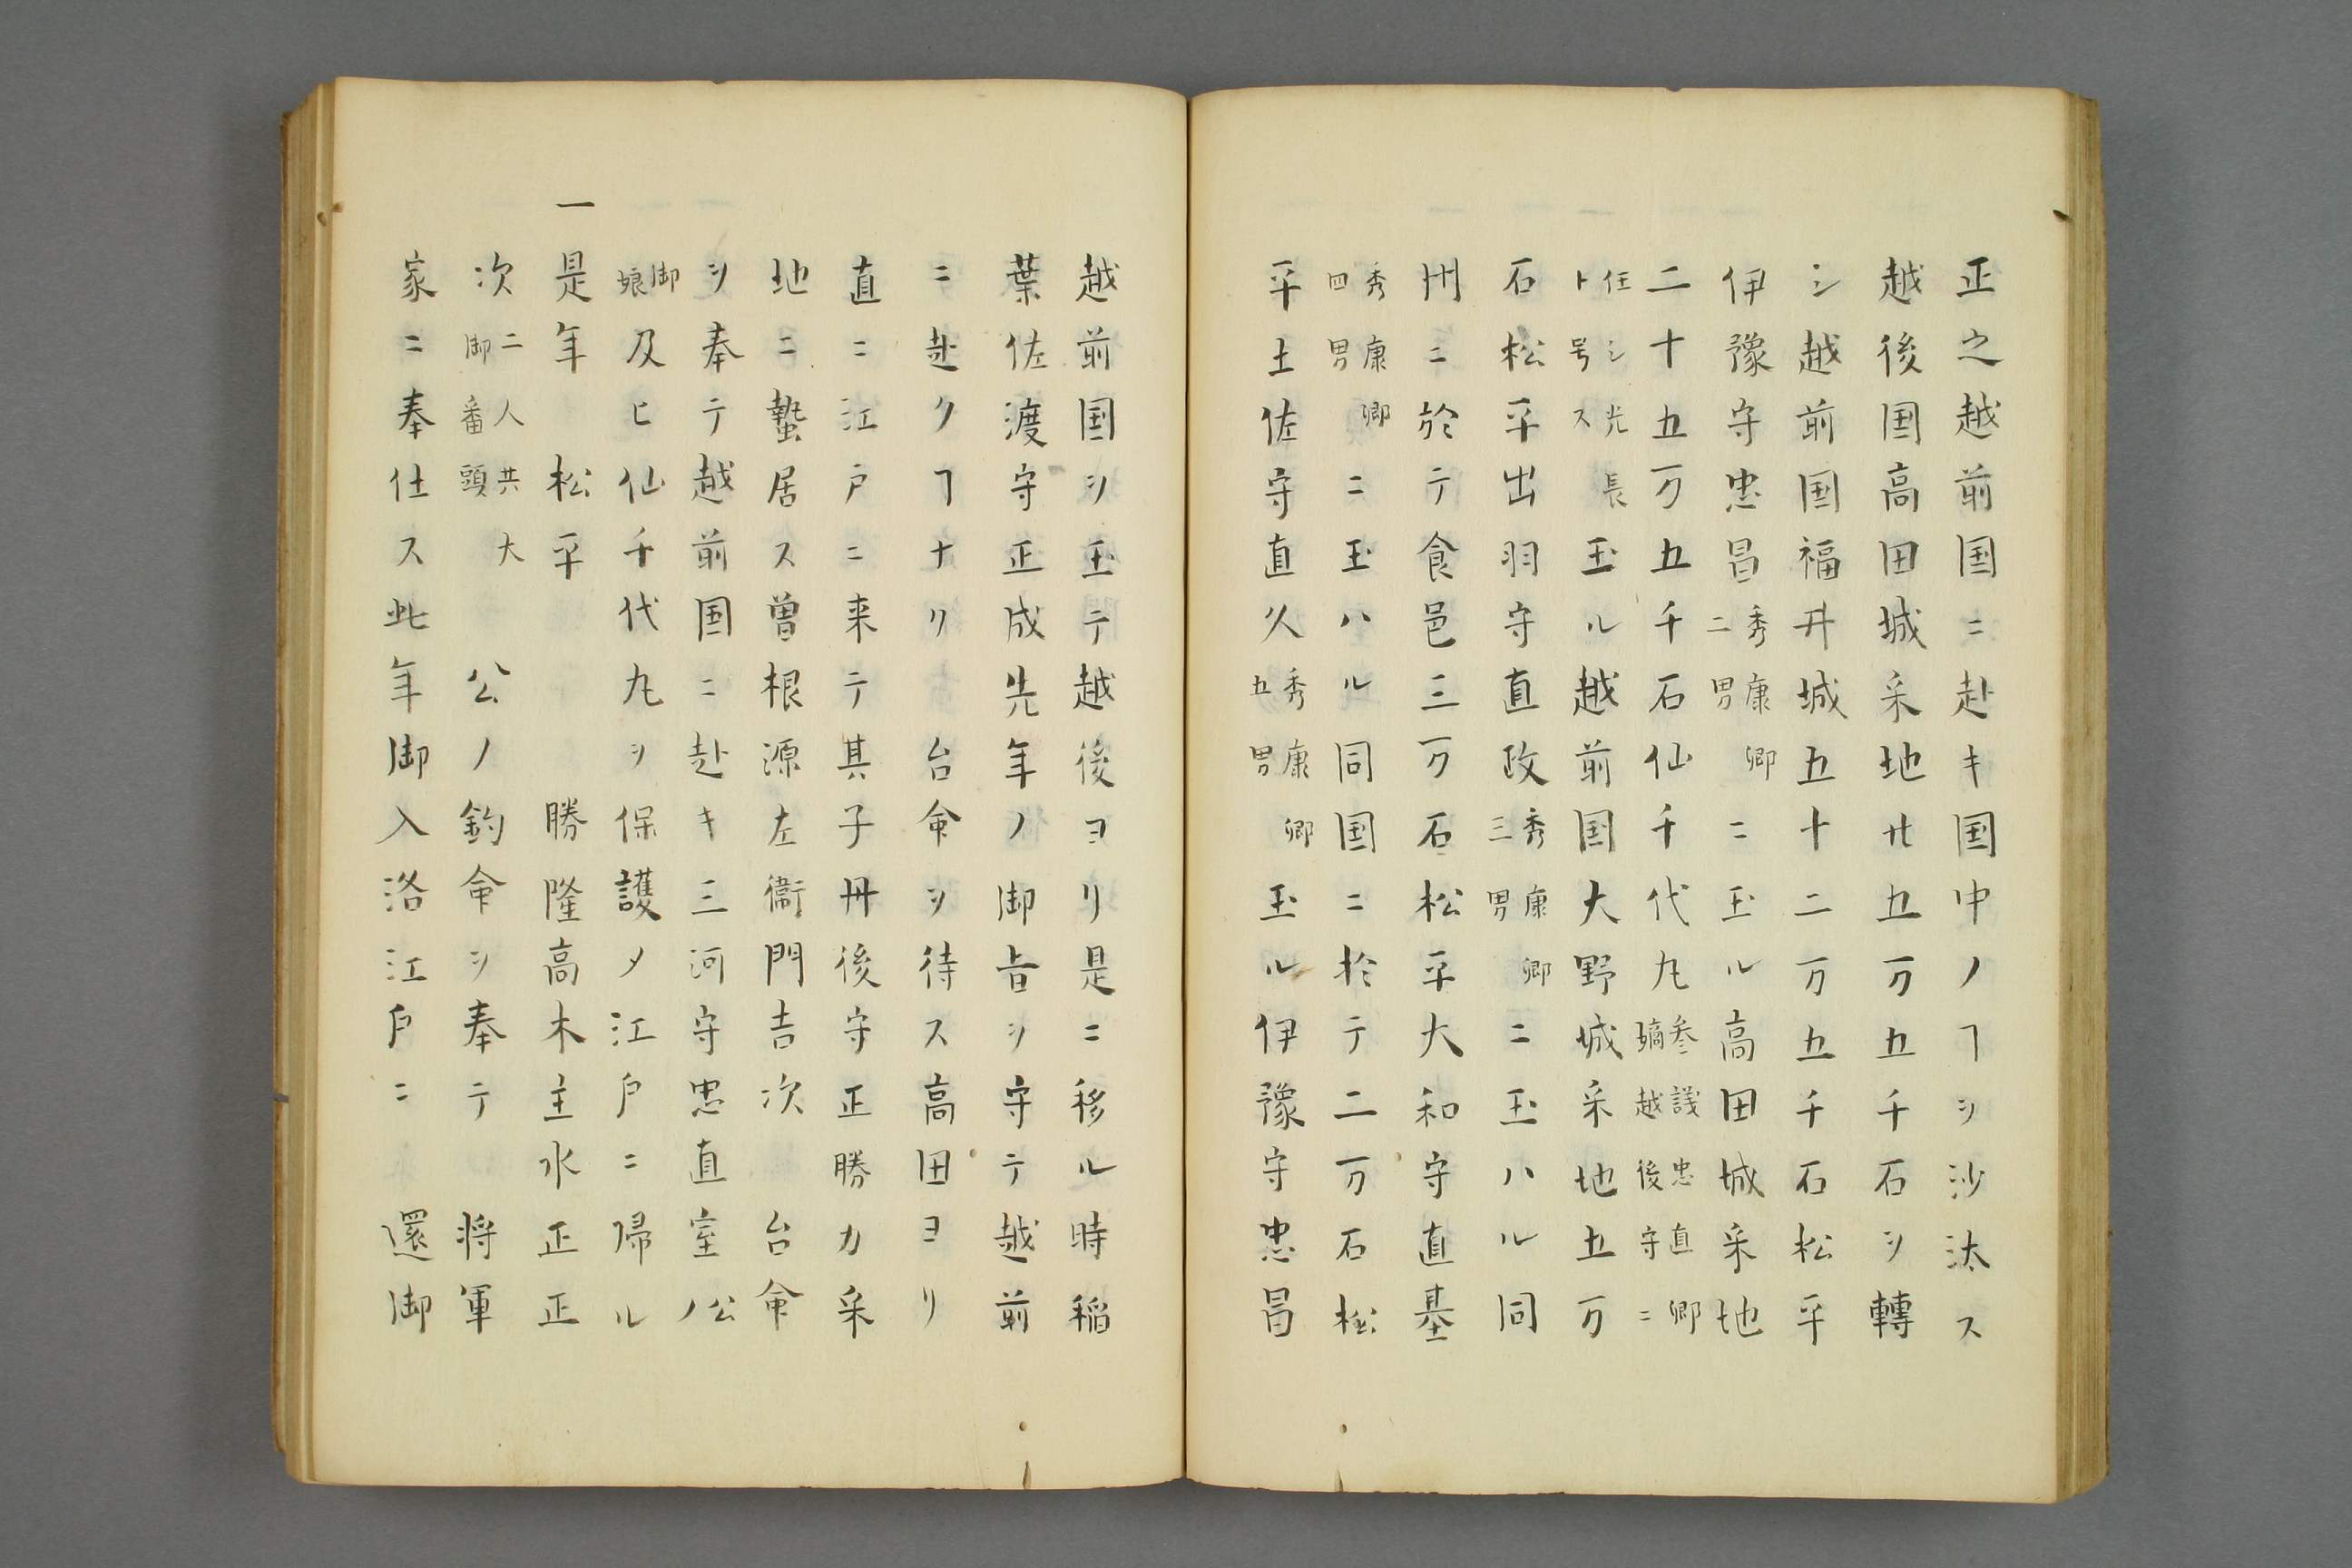 正之越前国ニ赴キ国中ノヿヲ沙汰ス
越後国高田城采地廿五万五千石ヲ轉
シ越前国福井城五十二万五千石松平
伊豫守忠昌秀康卿二男ニ玉ル高田城采地
二十五万五千石仙千代丸参議忠直卿嫡越後守ニ
任シ光長ト号ス玉ル越前国大野城采地五万
石松平出羽守直政秀康卿三男ニ玉ハル同
州ニ於テ食邑三万石松平大和守直基
秀康卿四男ニ玉ハル同国ニ於テ二万石松
平土佐守直久秀康卿五男玉ル伊豫守忠昌
越前国ヲ玉テ越後ヨリ是ニ移ル時稲
葉佐渡守正成先年ノ御旨ヲ守テ越前
ニ赴クヿナリ台命ヲ待ス高田ヨリ
直ニ江戸ニ来テ其子丹後守正勝カ采
地ニ蟄居ス曽根源左衞門吉次台命
ヲ奉テ越前国ニ赴キ三河守忠直室公ノ
御娘及ヒ仙千代丸ヲ保護〆江戸ニ帰ル
一是年松平勝隆高木主水正正
次二人共大御番頭公ノ鈞命ヲ奉テ将軍
家ニ奉仕ス此年御入洛江戸ニ還御